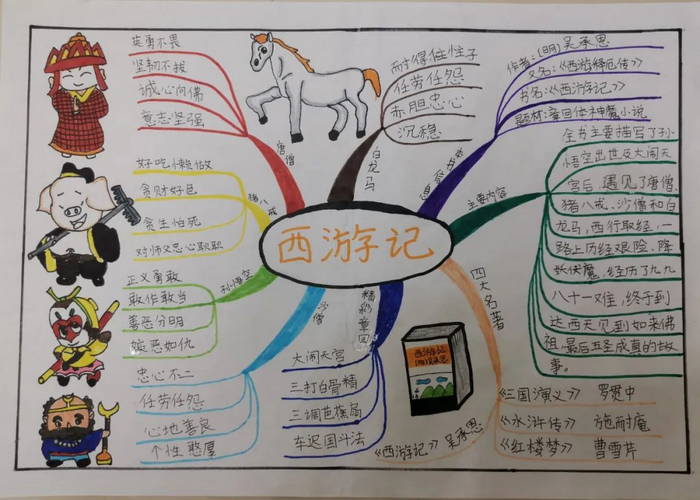 西游记
唐僧
英勇不畏
坚韧不拔
诚心向佛
意志坚强
猪八戒
好吃懒做
贪财好色
贪生怕死
对师父忠心职职
孙悟空
正义勇敢
敢作敢当
善恶分明
嫉恶如仇
沙僧
忠心不二
任劳任怨
心地善良
个性憨厚
白龙马
耐得住性子
任劳任怨
赤胆忠心
沉稳
作者:(明)吴承恩
又名:《西游释厄传》
书名:《西游记》
题材:章回体神魔小说
主要内容
全书主要描写了孙
悟空出世及大闹天
宫后,遇见了唐僧,
猪八戒、沙僧和白
龙马,西行取经,一
路上历经艰险、降
妖伏魔,经历了九九
八十一难,终于到
达西天见到如来佛
祖,最后五圣成真的故
事。
精彩章回
大闹天宫
三打白骨精
三调芭蕉扇
车迟国斗法
四大名著
《三国演义》 罗贯中
《水浒传》 施耐庵
《红楼梦》 曹雪芹
《西游记》吴承恩
西游记